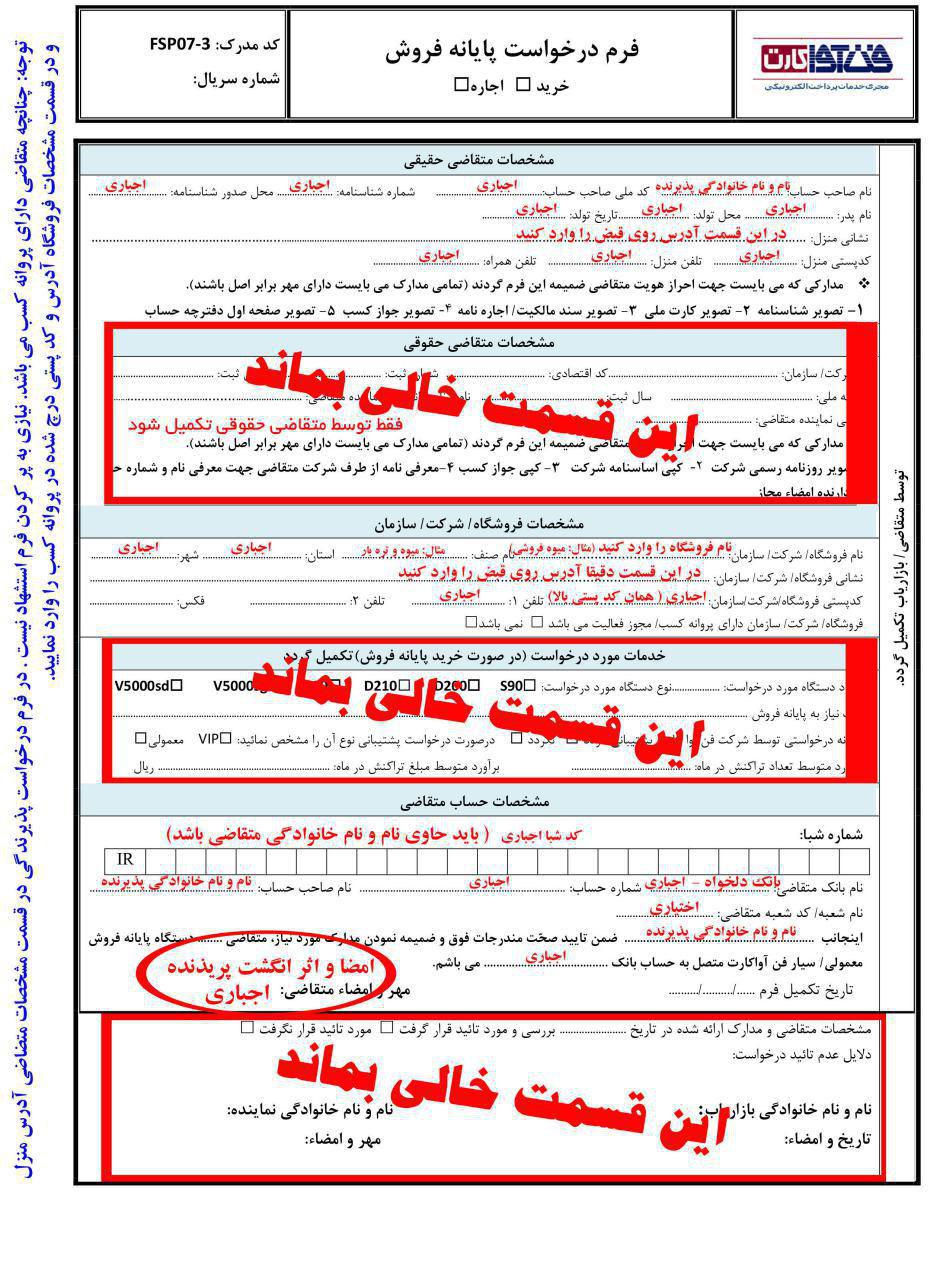 فن آوا کارت
مجری خدمات پرداخت الکترونیکی
فرم درخواست پایانه فروش
خرید ☐ اجاره☐
کد مدرک: FSP07-3
شماره سریال:
توجه: چنانچه متقاضی دارای پروانه کسب می باشد. نیازی به پر کردن فرم استشهاد نیست . در فرم درخواست پذیرندگی در قسمت مشخصات متضاضی آدرس منزل
و در قسمت مشخصات فروشگاه آدرس و کد پستی درج شده در پروانه کسب را وارد نمایید.
توسط متقاضی/ بازاریاب تکمیل گردد.
مشخصات متقاضی حقیقی
نام صاحب حساب: نام و نام خانوادگی پذیرنده کد ملی صاحب حساب: اجباری شماره شناسنامه: اجباری محل صدور شناسنامه: اجباری
نام پدر: اجباری محل تولد: اجباری تاریخ تولد: اجباری
نشانی منزل: در این قسمت آدرس روی قبض را وارد کنید
کدپستی منزل: اجباری تلفن منزل: اجباری تلفن همراه: اجباری
❖ مدارکی که می بایست جهت احراز هویت متقاضی ضمیمه این فرم گردند (تمامی مدارک می بایست دارای مهر برابر اصل باشند).
۱- تصویر شناسنامه ۲- تصویر کارت ملی ۳- تصویر سند مالکیت/ اجاره نامه ۴- تصویر جواز کسب ۵- تصویر صفحه اول دفترچه حساب
مشخصات متقاضی حقوقی
این قسمت خالی بماند
رکت/ سازمان: کد اقتصادی: شماره ثبت: ثبت:
ه ملی: سال ثبت:
ی نماینده متقاضی: فقط توسط متقاضی حقوقی تکمیل شود
مدارکی که می بایست جهت احراز متقاضی ضمیمه این فرم گردند (تمامی مدارک می بایست دارای مهر برابر اصل باشند).
صویر روزنامه رسمی شرکت ۲- کپی اساسنامه شرکت ۳- کپی جواز کسب ۴-معرفی نامه از طرف شرکت متقاضی جهت معرفی نام و شماره ح
دارنده امضاء مجاز
مشخصات فروشگاه/ شرکت/ سازمان
نام فروشگاه/ شرکت/ سازمان: نام فروشگاه را وارد کنید (مثال: میوه فروشی) نام صنف: مثال: میوه و تره بار استان: اجباری شهر: اجباری
نشانی فروشگاه/ شرکت/ سازمان: در این قسمت دقیقا آدرس روی قبض را وارد کنید
کدپستی فروشگاه/شرکت/سازمان: اجباری ( همان کد پستی بالا) تلفن ۱: اجباری تلفن ۲: فکس:
فروشگاه/ شرکت/ سازمان دارای پروانه کسب/ مجوز فعالیت می باشد ☐ نمی باشد☐
خدمات مورد درخواست (در صورت خرید پایانه فروش) تکمیل گردد
این قسمت خالی بماند
د دستگاه مورد درخواست: نوع دستگاه مورد درخواست: S90☐ D200☐ D210☐ V5000 V5000sd☐
نیاز به پایانه فروش
نه درخواستی توسط شرکت فن آوا پشتیبانی گردد ☐ نگردد ☐ درصورت درخواست پشتیبانی نوع آن را مشخص نمائید: VIP☐ معمولی☐
رد متوسط تعداد تراکنش در ماه: برآورد متوسط مبلغ تراکنش در ماه: ریال
مشخصات حساب متقاضی
شماره شبا: کد شبا اجباری ( باید حاوی نام و نام خانوادگی متقاضی باشد)
IR
نام بانک متقاضی: بانک دلخواه - اجباری شماره حساب: اجباری نام صاحب حساب: نام و نام خانوادگی پذیرنده
نام شعبه/ کد شعبه متقاضی: اختیاری
اینجانب نام و نام خانوادگی پذیرنده ضمن تایید صحّت مندرجات فوق و ضمیمه نمودن مدارک مورد نیاز، متقاضی ....... دستگاه پایانه فروش
معمولی/ سیار فن آواکارت متصل به حساب بانک اجباری می باشم.
امضا و اثر انگشت پریذنده
اجباری
تاریخ تکمیل فرم ....../........../......... مهر و امضاء متقاضی:
مشخصات متقاضی و مدارک ارائه شده در تاریخ ........................ بررسی و مورد تائید قرار گرفت ☐ مورد تائید قرار نگرفت ☐
دلایل عدم تائید درخواست:
این قسمت خالی بماند
نام و نام خانوادگی بازاریاب: نام و نام خانوادگی نماینده:
تاریخ و امضاء: مهر و امضاء: